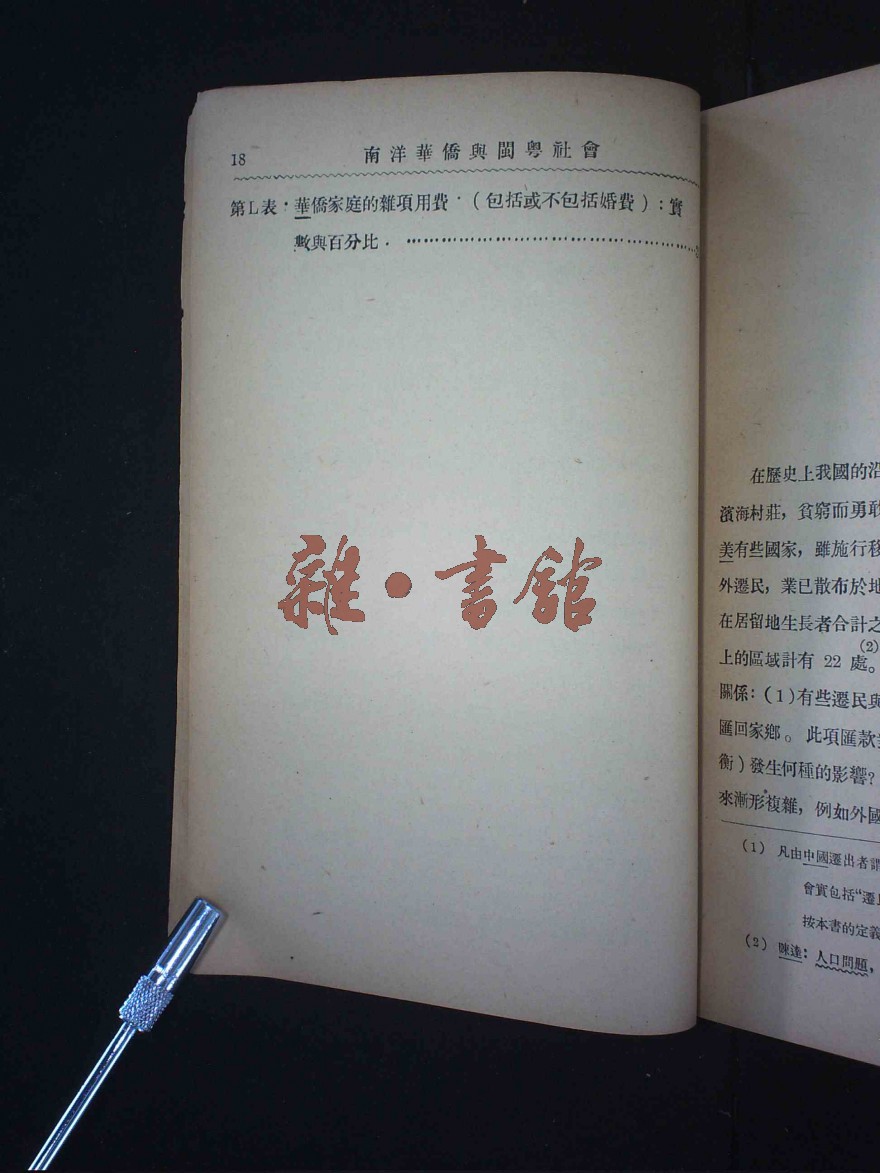 18
南洋華僑與閩粵社會
第L表·華僑家庭的雜項用費·(包括或不包括婚費):實
數與百分比. ………………………………………
雜·書館
在歷史上我國的沿
濱海村莊，貧窮而勇敢
美有些國家，雖施行移
外遷民，業已散布於地
在居留地生長者合計之
(2)
上的區域計有 22 處。
關係：(1)有些遷民與
匯回家鄉。此項匯款
衡)發生何種的影響?
來漸形複雜，例如外國
(1) 凡由中國遷出者謂
會實包括“遷民
按本書的定義
(2) 陳達：人口問題，